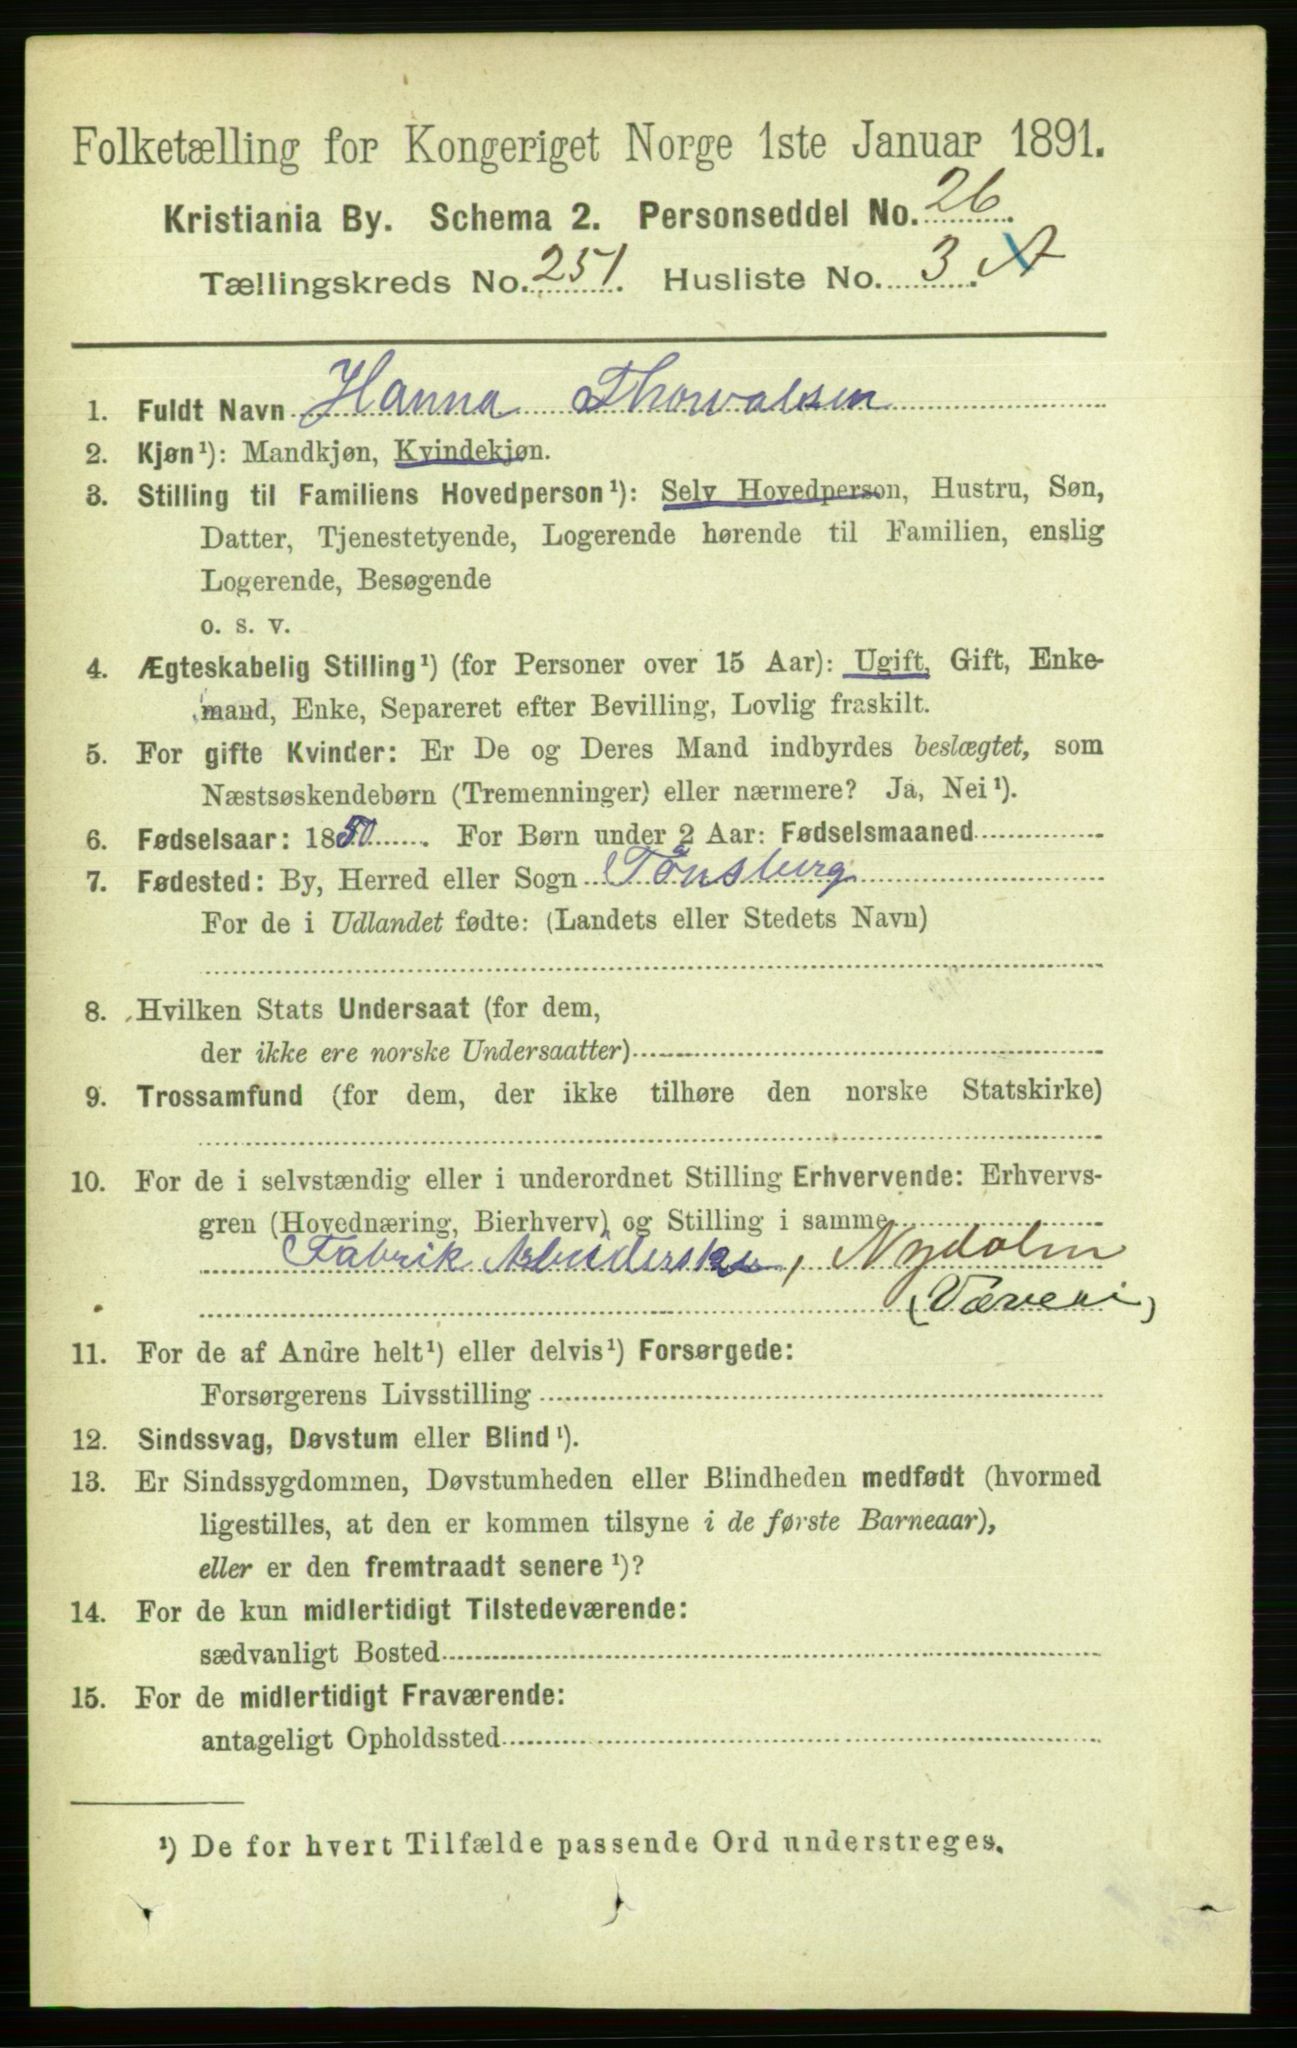 Folketælling for Kongeriget Norge 1ste Januar 1891.
Kristiania By. Schema 2. Personseddel No. 26.
Tællingskreds No. 251. Husliste No. 3. A
1. Fuldt Navn Hanna Thorvalsen
2. Kjøn¹): Mandkjøn, Kvindekjøn.
3. Stilling til Familiens Hovedperson¹): Selv Hovedperson, Hustru, Søn,
Datter, Tjenestetyende, Logerende hørende til Familien, enslig
Logerende, Besøgende
o. s. v.
4. Ægteskabelig Stilling¹) (for Personer over 15 Aar): Ugift, Gift, Enke-
mand, Enke, Separeret efter Bevilling, Lovlig fraskilt.
5. For gifte Kvinder: Er De og Deres Mand indbyrdes beslægtet, som
Næstsøskendebørn (Tremenninger) eller nærmere? Ja, Nei¹).
6. Fødselsaar: 1850. For Børn under 2 Aar: Fødselsmaaned
7. Fødested: By, Herred eller Sogn Tönsberg
For de i Udlandet fødte: (Landets eller Stedets Navn)
8. Hvilken Stats Undersaat (for dem,
der ikke ere norske Undersaatter)
9. Trossamfund (for dem, der ikke tilhøre den norske Statskirke)
10. For de i selvstændig eller i underordnet Stilling Erhvervende: Erhvervs-
gren (Hovednæring, Bierhverv) og Stilling i samme
Fabrik Arbeiderske, Nydalen
(Væveri)
11. For de af Andre helt¹) eller delvis¹) Forsørgede:
Forsørgerens Livsstilling
12. Sindssvag, Døvstum eller Blind¹).
13. Er Sindssygdommen, Døvstumheden eller Blindheden medfødt (hvormed
ligestilles, at den er kommen tilsyne i de første Barneaar),
eller er den fremtraadt senere¹)?
14. For de kun midlertidigt Tilstedeværende:
sædvanligt Bosted
15. For de midlertidigt Fraværende:
antageligt Opholdssted
¹) De for hvert Tilfælde passende Ord understreges.